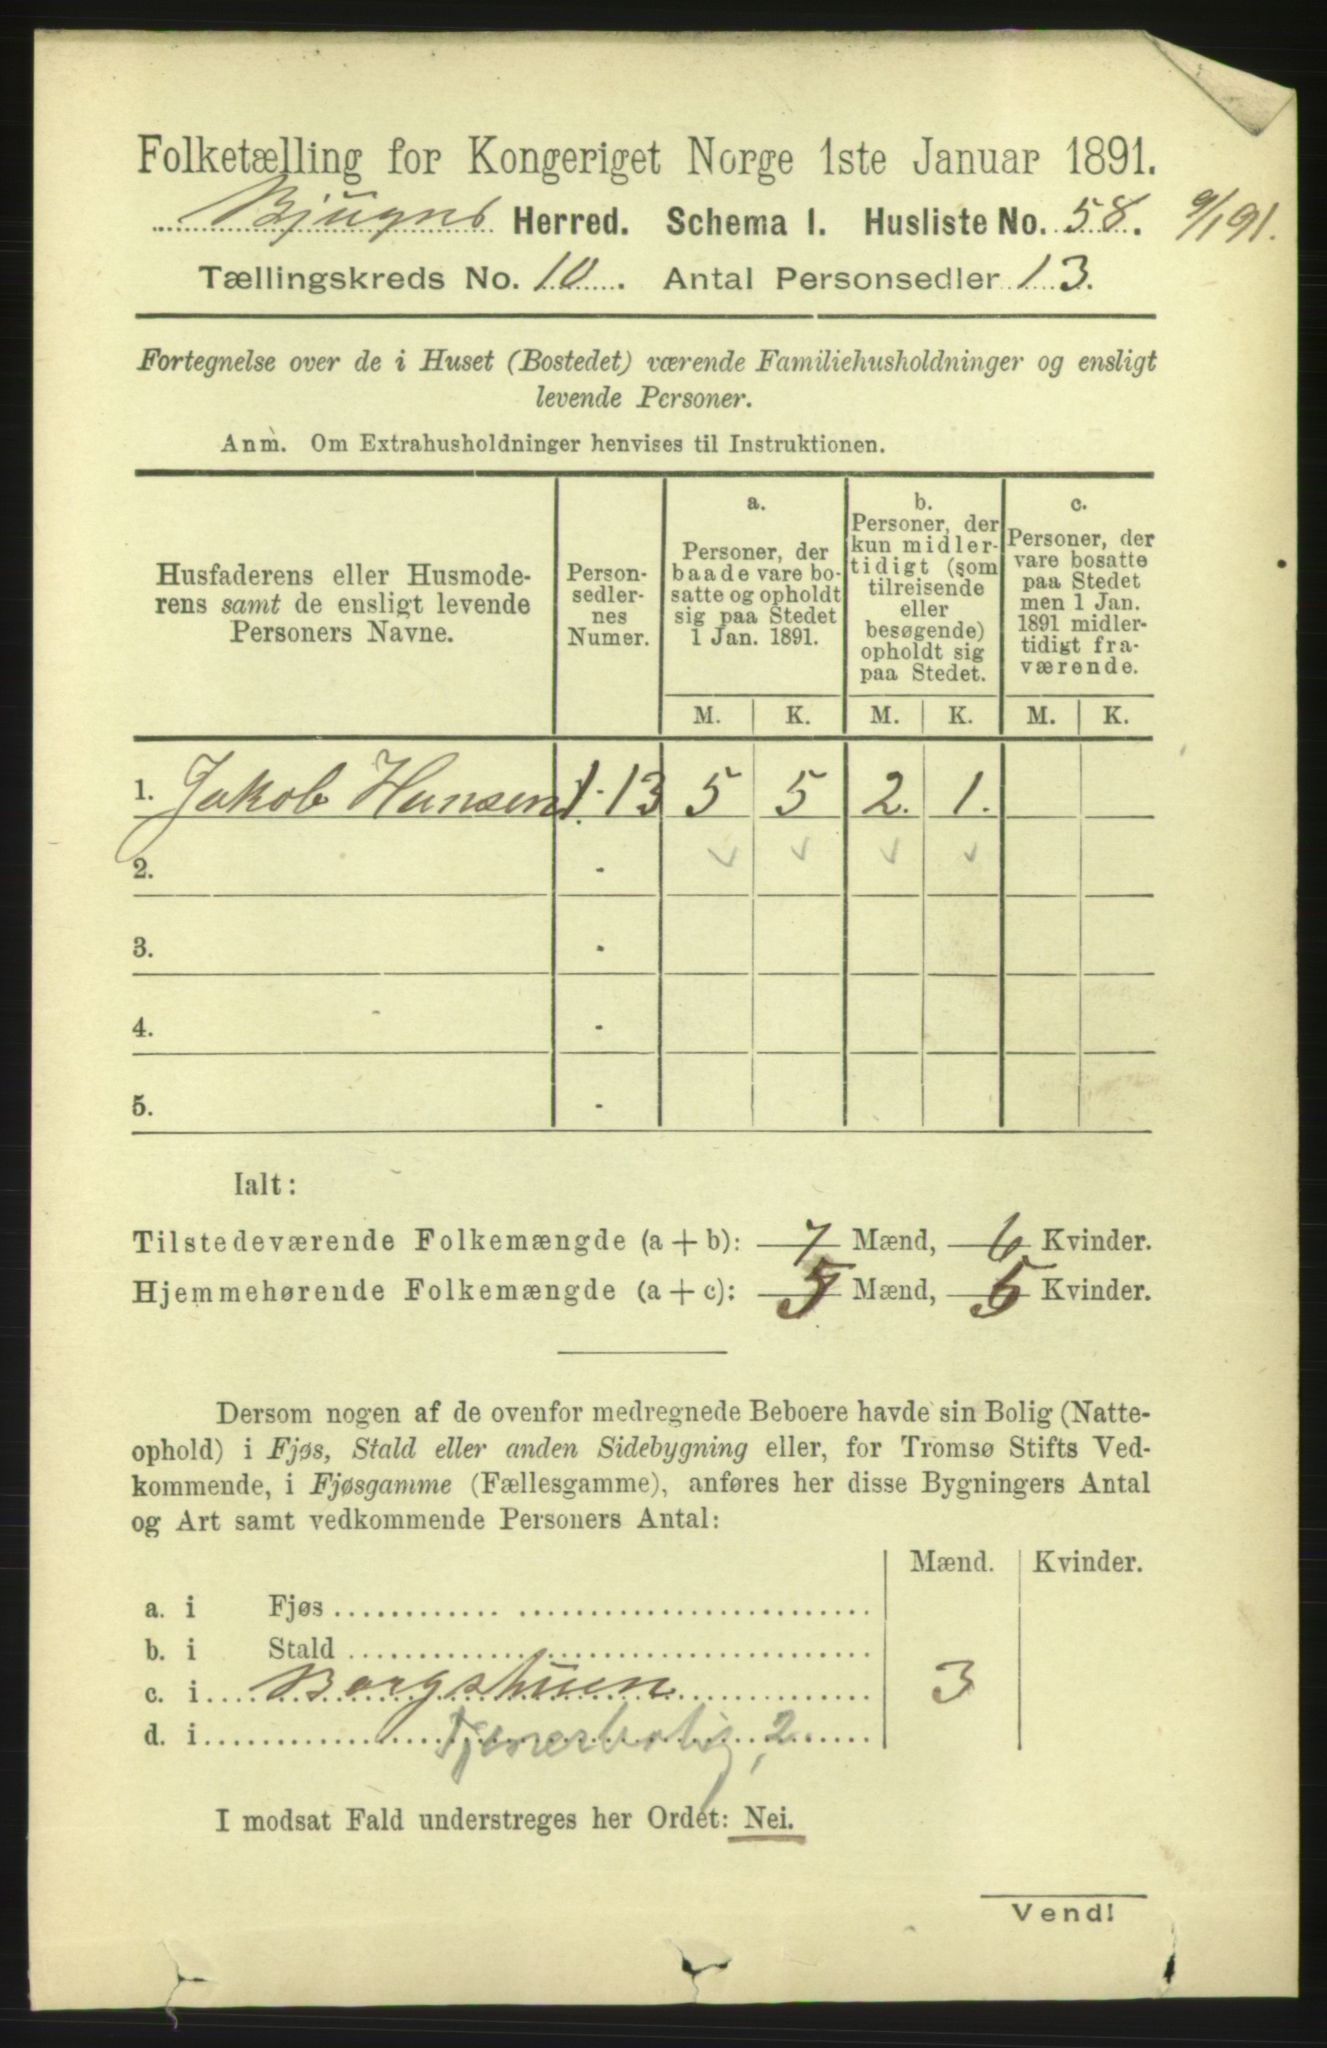 Folketælling for Kongeriget Norge 1ste Januar 1891.
Bjugns Herred. Schema 1. Husliste No. 58. 9/1 91.
Tællingskreds No. 10. Antal Personsedler 13.
Fortegnelse over de i Huset (Bostedet) værende Familiehusholdninger og ensligt
levende Personer.
Anm. Om Extrahusholdninger henvises til Instruktionen.
Husfaderens eller Husmode-
rens samt de ensligt levende
Personers Navne.
Person-
sedler-
nes
Numer.
a.
Personer, der
baade vare bo-
satte og opholdt
sig paa Stedet
1 Jan. 1891.
b.
Personer, der
kun midler-
tidigt (som
tilreisende
eller
besøgende)
opholdt sig
paa Stedet.
c.
Personer, der
vare bosatte
paa Stedet
men 1 Jan.
1891 midler-
tidigt fra-
værende.
M. K. M. K. M. K.
1. Jakob Hansen 1-13 5 5 2. 1.
2. -
3. -
4. -
5. -
Ialt:
Tilstedeværende Folkemængde (a + b): 7 Mænd, 6 Kvinder.
Hjemmehørende Folkemængde (a + c): 5 Mænd, 5 Kvinder.
Dersom nogen af de ovenfor medregnede Beboere havde sin Bolig (Natte-
ophold) i Fjøs, Stald eller anden Sidebygning eller, for Tromsø Stifts Ved-
kommende, i Fjøsgamme (Fællesgamme), anføres her disse Bygningers Antal
og Art samt vedkommende Personers Antal:
Mænd. Kvinder.
a. i Fjøs
b. i Stald
c. i Borgstuen 3
d. i Tjenerbolig, 2
I modsat Fald understreges her Ordet: Nei.
Vend!